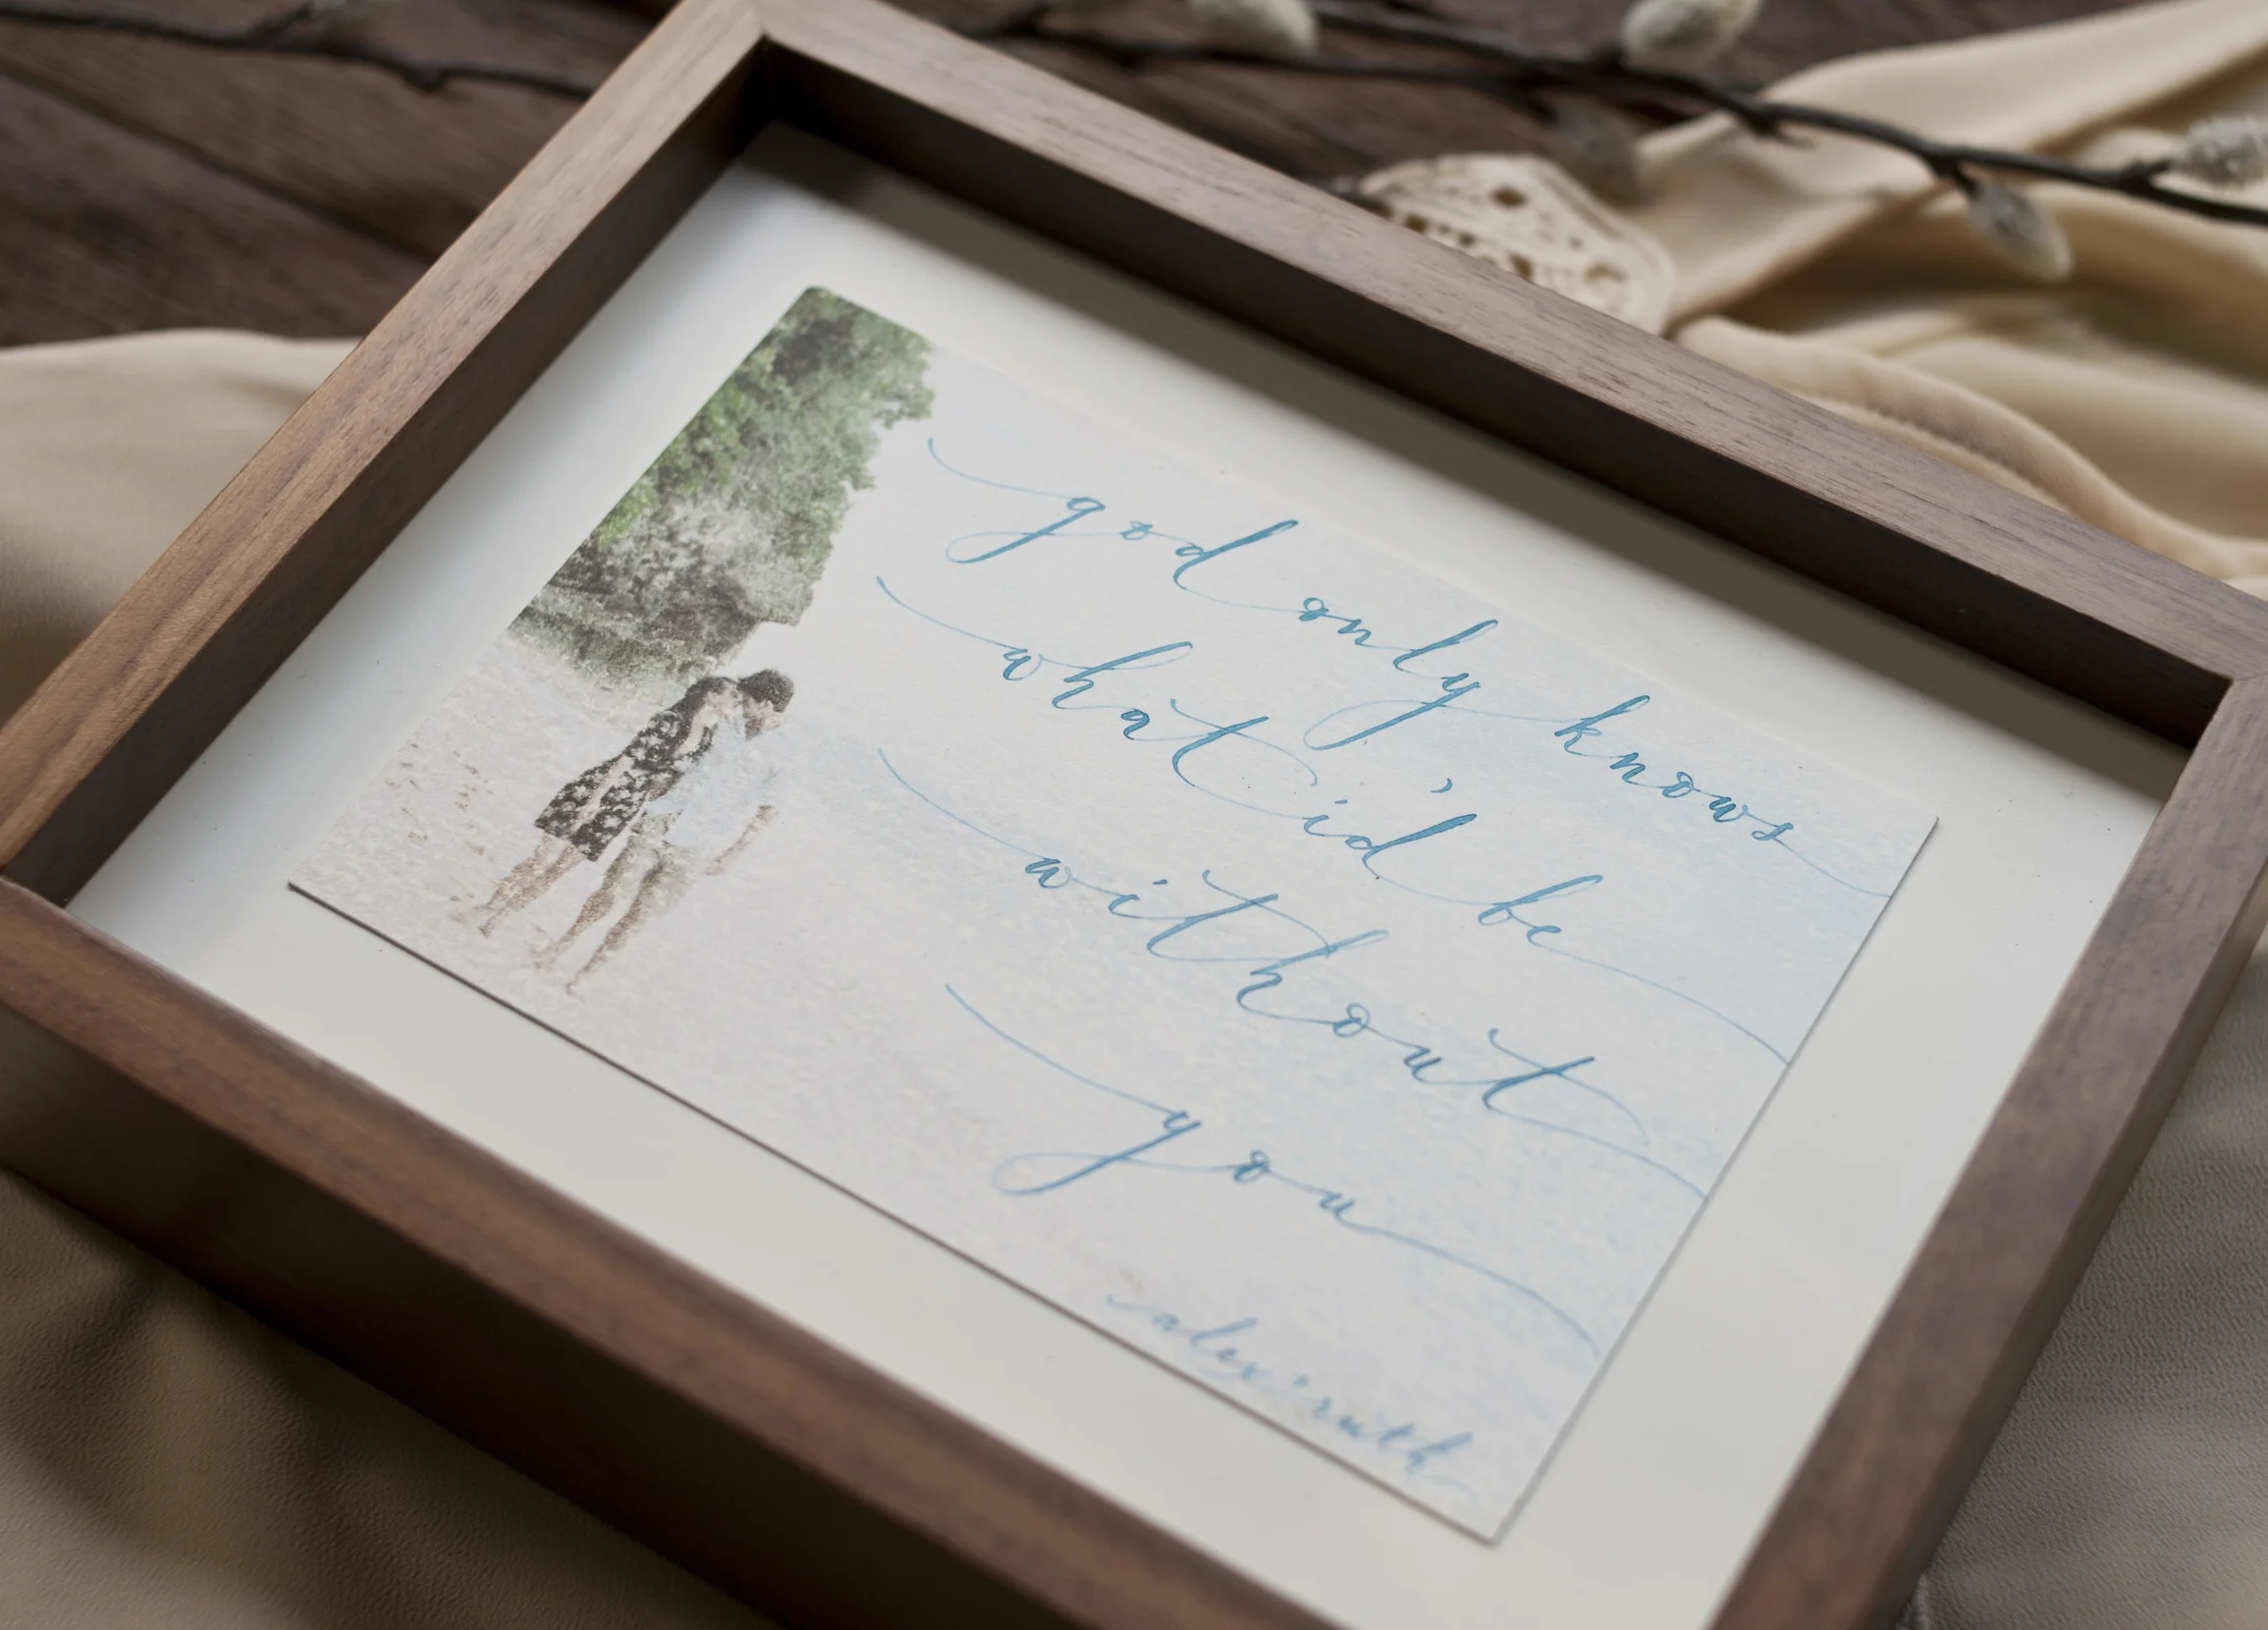 god only knows
what i'd be
without
you
alex + ruth